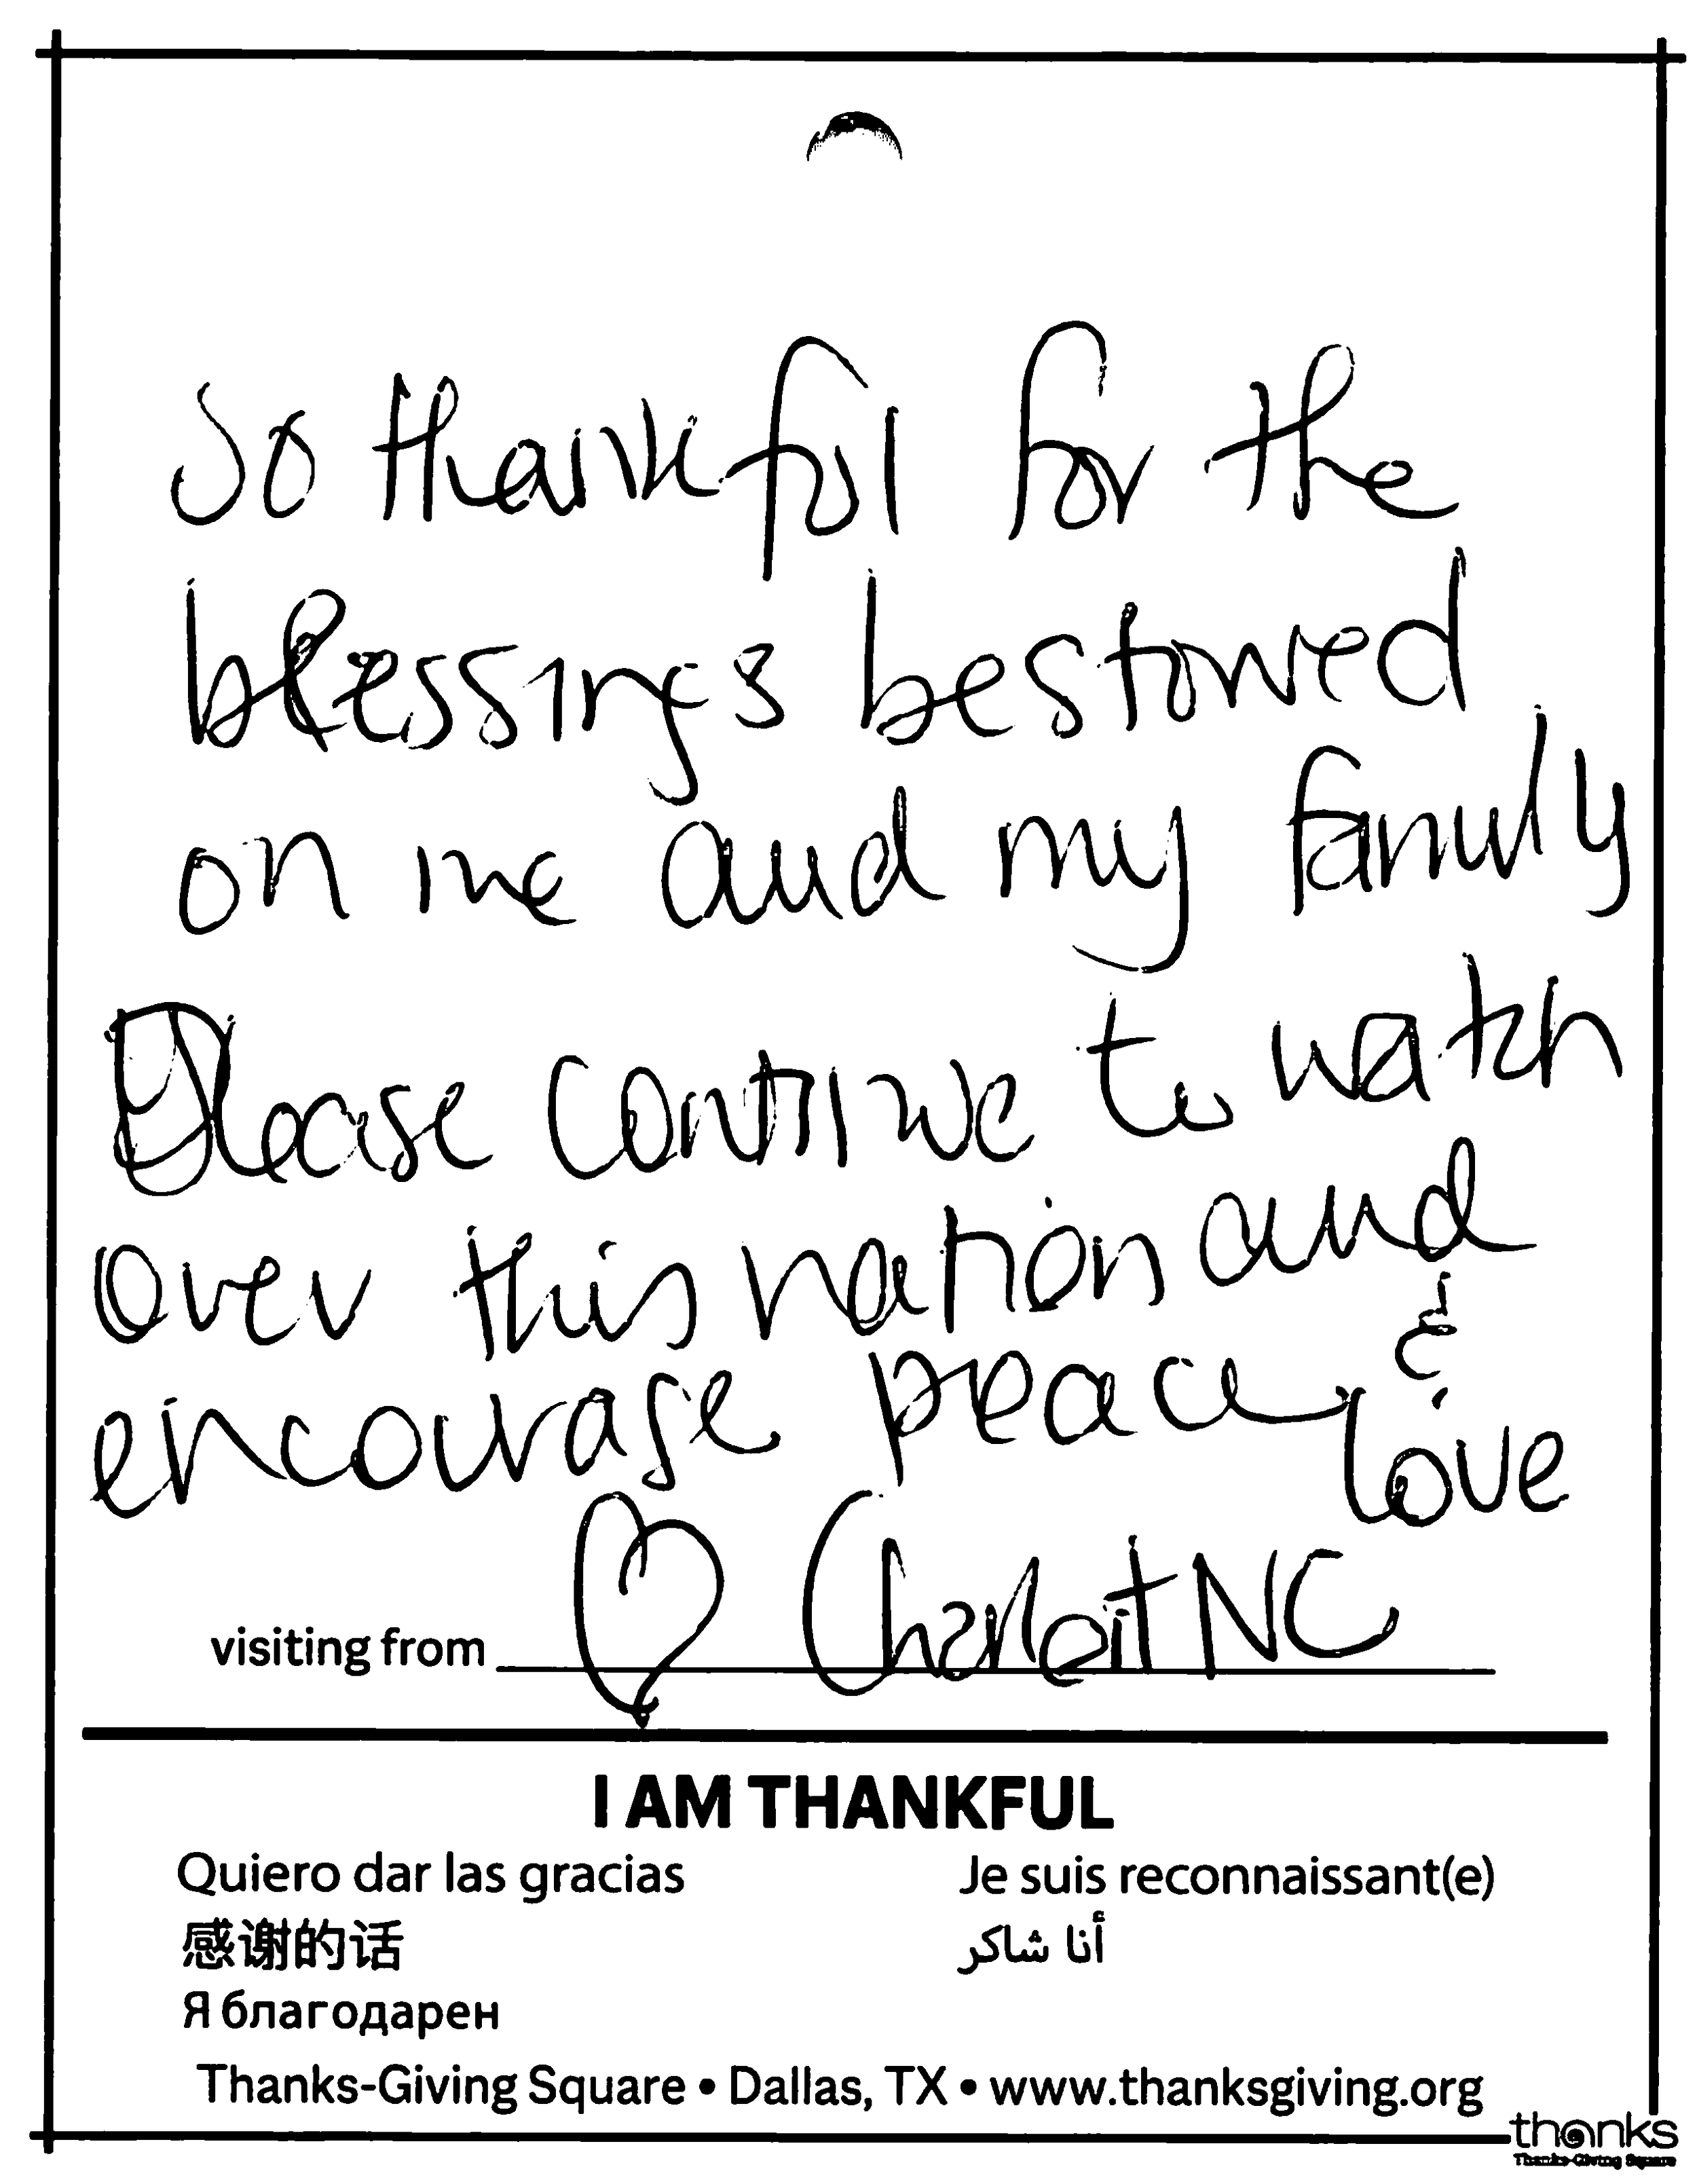 So thankful for the
blessings bestowed
on me and my family
Please continue to watch
over this nation and
encourage peace &
love
visiting from ♡ Charlott NC
I AM THANKFUL
Quiero dar las gracias
Je suis reconnaissant(e)
感谢的话
أنا شاكر
Я благодарен
Thanks-Giving Square • Dallas, TX • www.thanksgiving.org
thanks
Thanks-Giving Square